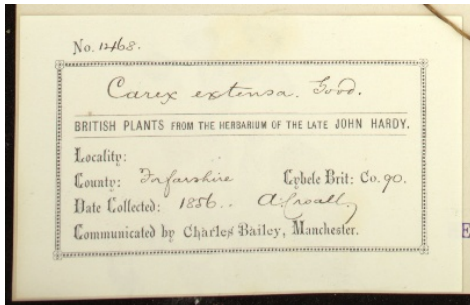 No. 1468.
Carex extensa. Good.
BRITISH PLANTS FROM THE HERBARIUM OF THE LATE JOHN HARDY.
Locality:
County: Forfarshire Cybele Brit: Co. 90.
Date Collected: 1856.. A. Croall,
Communicated by Charles Bailey, Manchester.
E